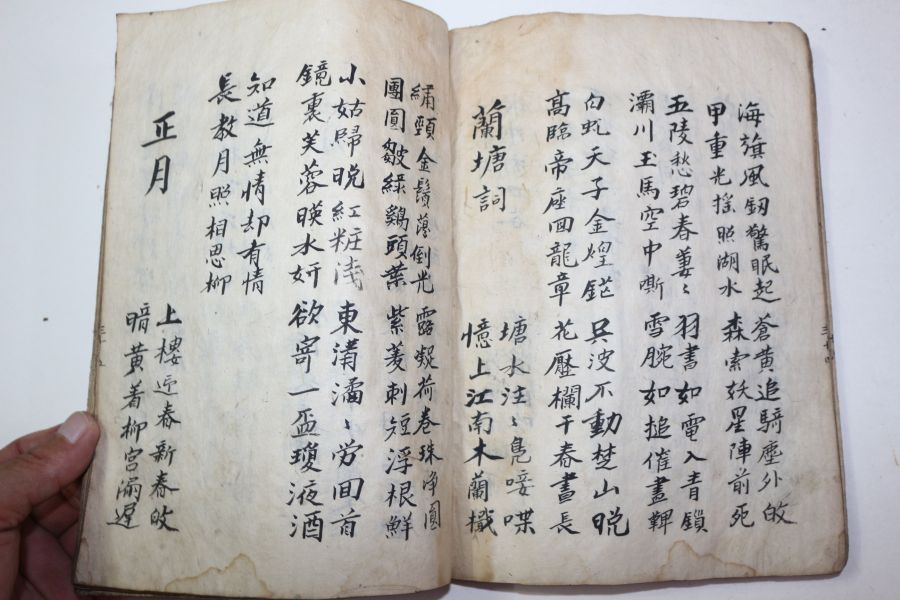 海旗風釼驚眠起 蒼黄追騎塵外皈
甲重光搖照湖水 森索妖星陣前死
五陵愁碧春萋〻 羽書如電入青鎖
灞川玉馬空中嘶 雪腕如搥催畫鞞
白虬天子金煌鋩 吳波不動楚山晩
高臨帝座回龍章 花壓欄干春晝長
蘭塘詞 塘水汪〻鳧唼喋
憶上江南木蘭檝
繡頸金鬚蕩倒光 露凝荷卷珠淨圓
團圓皺綠鷄頭葉 紫菱刺短浮根鮮
小姑歸晩紅粧淺 東溝潏〻勞回首
鏡裏芙蓉暎水姸 欲寄一盃瓊液酒
知道無情却有情
長教月照相思柳
正月 上樓迎春新春皈
暗黄着柳宮漏遲